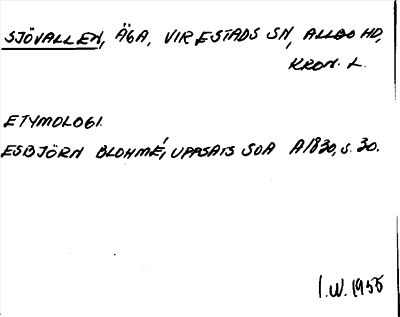 SJÖVALLEN, ÄGA, VIRESTADS SN, ALLBO HD,
KRON. L.
ETYMOLOGI.
ESBJÖRN BLOHMÉ, UPPSATS SOA A1830, s. 30.
I.W. 1955